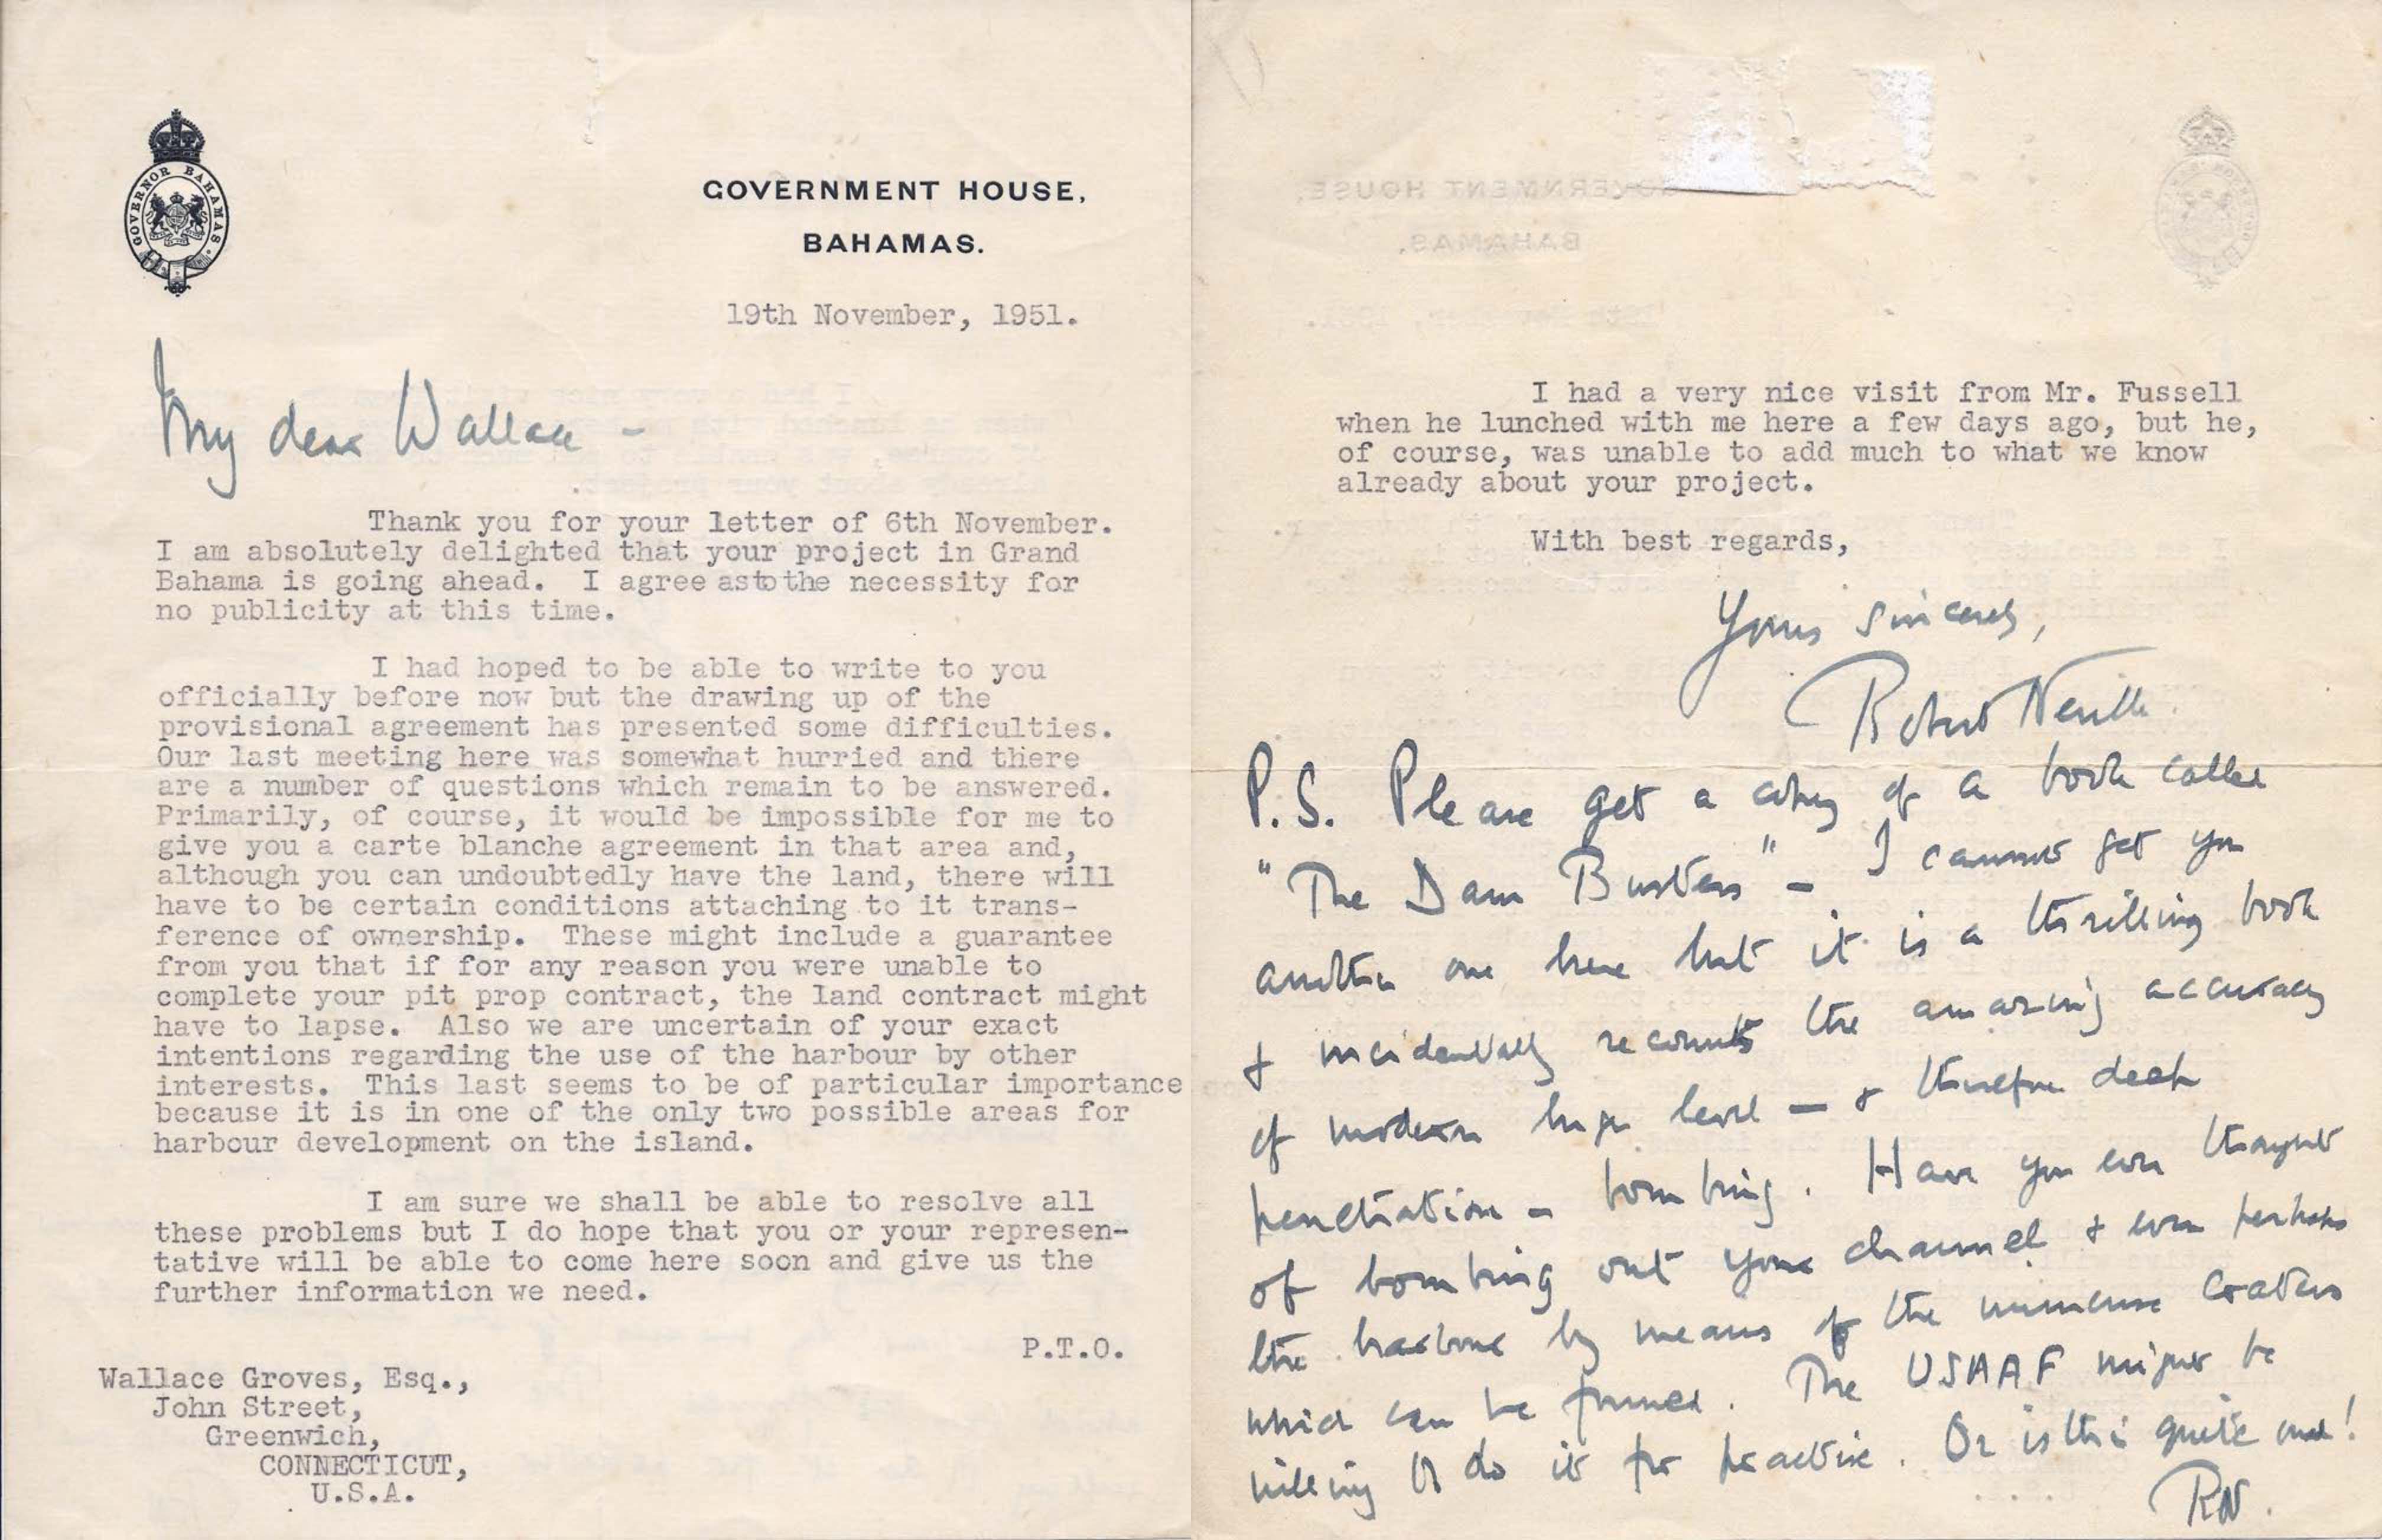 GOVERNOR BAHAMAS
GOVERNMENT HOUSE,
BAHAMAS.
19th November, 1951.
My dear Wallace -
Thank you for your letter of 6th November.
I am absolutely delighted that your project in Grand
Bahama is going ahead. I agree astothe necessity for
no publicity at this time.
I had hoped to be able to write to you
officially before now but the drawing up of the
provisional agreement has presented some difficulties.
Our last meeting here was somewhat hurried and there
are a number of questions which remain to be answered.
Primarily, of course, it would be impossible for me to
give you a carte blanche agreement in that area and,
although you can undoubtedly have the land, there will
have to be certain conditions attaching to it trans-
ference of ownership. These might include a guarantee
from you that if for any reason you were unable to
complete your pit prop contract, the land contract might
have to lapse. Also we are uncertain of your exact
intentions regarding the use of the harbour by other
interests. This last seems to be of particular importance
because it is in one of the only two possible areas for
harbour development on the island.
I am sure we shall be able to resolve all
these problems but I do hope that you or your represen-
tative will be able to come here soon and give us the
further information we need.
P.T.O.
Wallace Groves, Esq.,
John Street,
Greenwich,
CONNECTICUT,
U.S.A.
I had a very nice visit from Mr. Fussell
when he lunched with me here a few days ago, but he,
of course, was unable to add much to what we know
already about your project.
With best regards,
Yours sincerely,
Robert Neville.
P.S. Please get a copy of a book called
"The Dam Busters" - I cannot get you
another one here but it is a thrilling book
& incidentally recounts the amazing accuracy
of modern high level - & therefore deep
penetration - bombing. Have you ever thought
of bombing out your channel & even perhaps
the harbour by means of the immense craters
which can be formed. The USAAF might be
willing to do it for practice. Or is this quite mad!
RN.